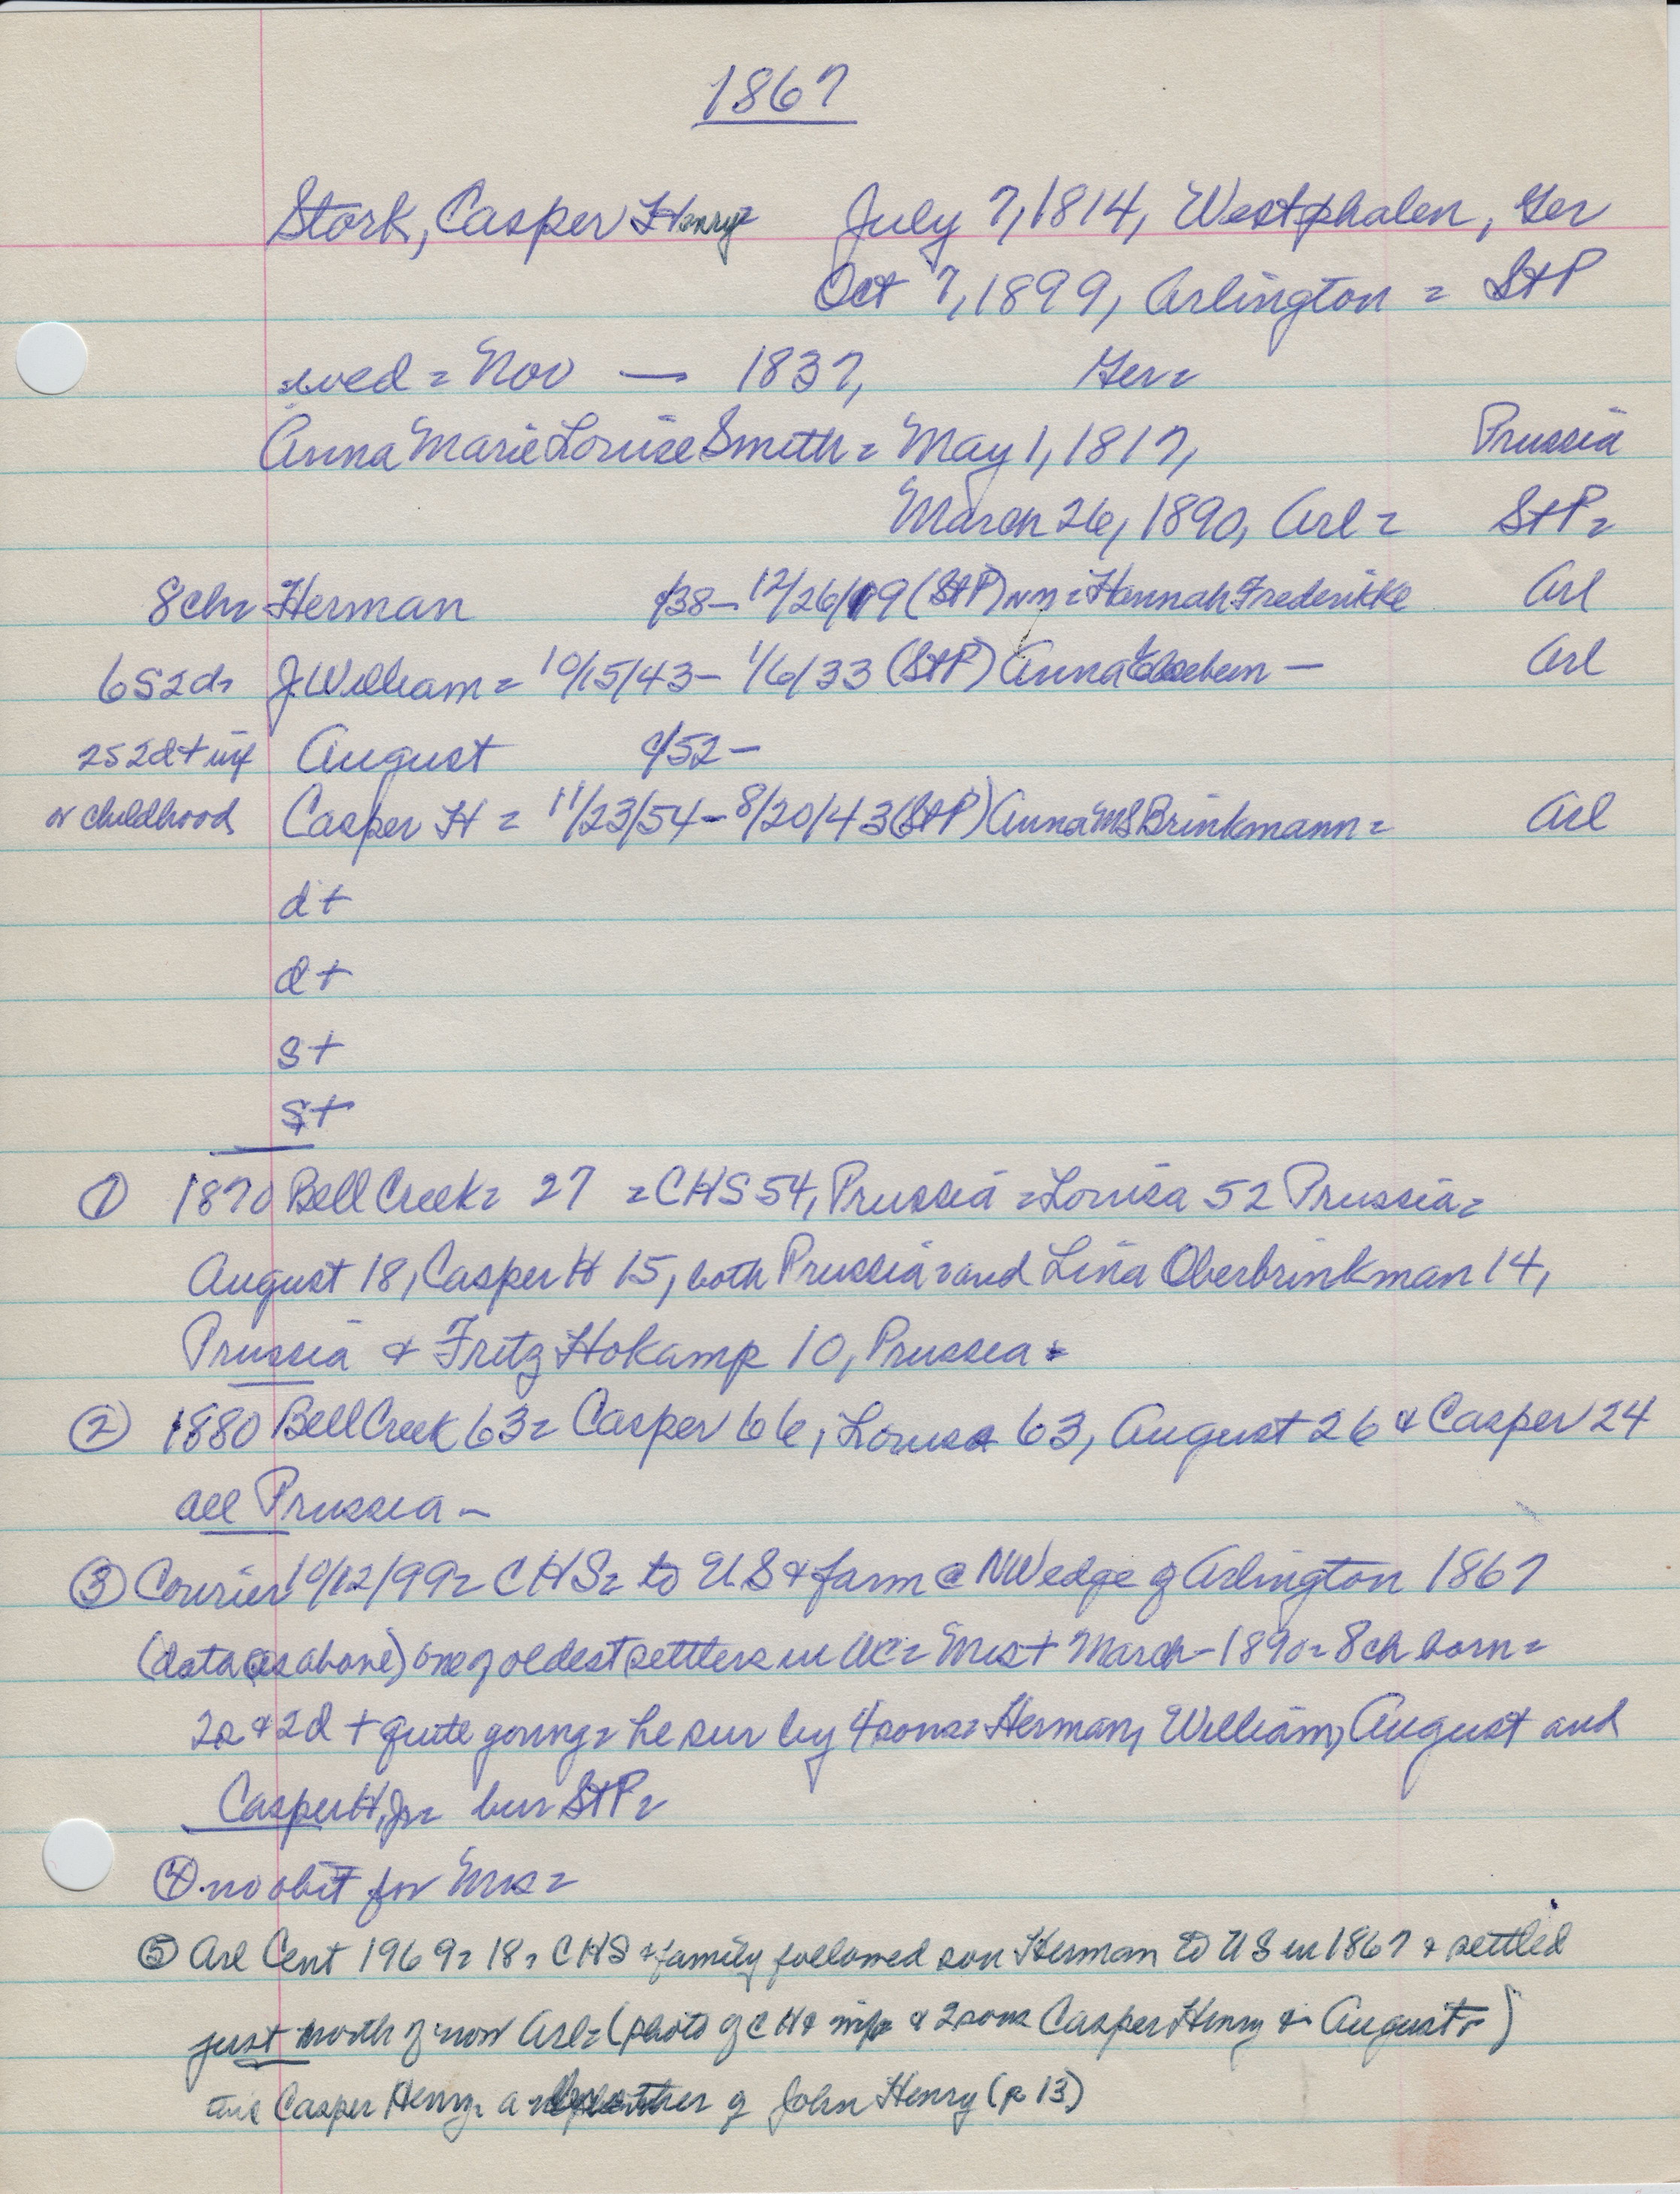 1867
Stork, Casper Henry July 7, 1814, Westphalen, Ger
Oct 7, 1899, Arlington = StP
wed = Nov — 1837, Ger =
Anna Marie Louise Smith = May 1, 1817, Prussia
March 26, 1890, Arl = StP =
8ch = Herman c/38 - 12/26/19 (StP) = Hannah Frederikke Arl
6s2d = J William = 10/15/43 - 1/6/33 (StP) Anna — Arl
2s2d + inf August c/52 -
or childhood Casper H = 11/23/54 - 8/20/43 (StP) Anna MS Brinkmann = Arl
d +
d +
s +
s +
① 1870 Bell Creek = 27 = CHS 54, Prussia = Louisa 52 Prussia =
August 18, Casper H 15, both Prussia = and Lina Oberbrinkman 14,
Prussia & Fritz Hokamp 10, Prussia
② 1880 Bell Creek 63 = Casper 66, Louisa 63, August 26 & Casper 24
all Prussia -
③ Courier 10/12/99 = CHS = to US & farm @ NW edge of Arlington 1867
(data as above) one of oldest settlers in WC = Mrs + March - 1890 = 8 ch born =
2s & 2d + quite young = he sur by 4 sons = Herman, William, August and
Casper H, Jr = bur StP =
④ no obit for Mrs =
⑤ Arl Cent 1969 = 18 = CHS & family followed son Herman to US in 1867 & settled
just north of now Arl = (photo of CH & wife & 2 sons Casper Henry & August - )
this Casper Henry = a of John Henry (p 13)